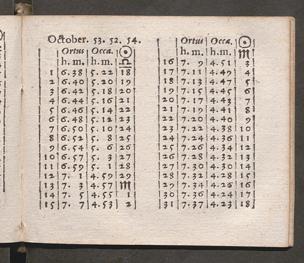 October. 53. 52. 54.
Ortus Occa. ☉
h. m. h. m. ♎
1 6.38 5.22 18
2 6.40 5.20 19
3 6.42 5.18 20
4 6.44 5.16 21
5 6.46 5.14 22
6 6.48 5.12 23
7 6.50 5.10 24
8 6.52 5. 8 25
9 6.54 5. 6 26
10 6.57 5. 3 27
11 6.59 5. 1 28
12 7. 1 4.59 29
13 7. 3 4.57 ♏
14 7. 5 4.55 1
15 7. 7 4.53 2
Ortus Occa. ☉
h. m. h. m. ♏
16 7. 9 4.51 3
17 7.11 4.49 4
18 7.13 4.47 5
19 7.15 4.45 6
20 7.17 4.43 7
21 7.19 4.41 8
22 7.20 4.40 9
23 7.22 4.38 10
24 7.24 4.36 11
25 7.26 4.34 12
26 7.28 4.32 13
27 7.30 4.30 14
28 7.32 4.28 15
29 7.34 4.26 16
30 7.36 4.24 17
31 7.37 4.23 18